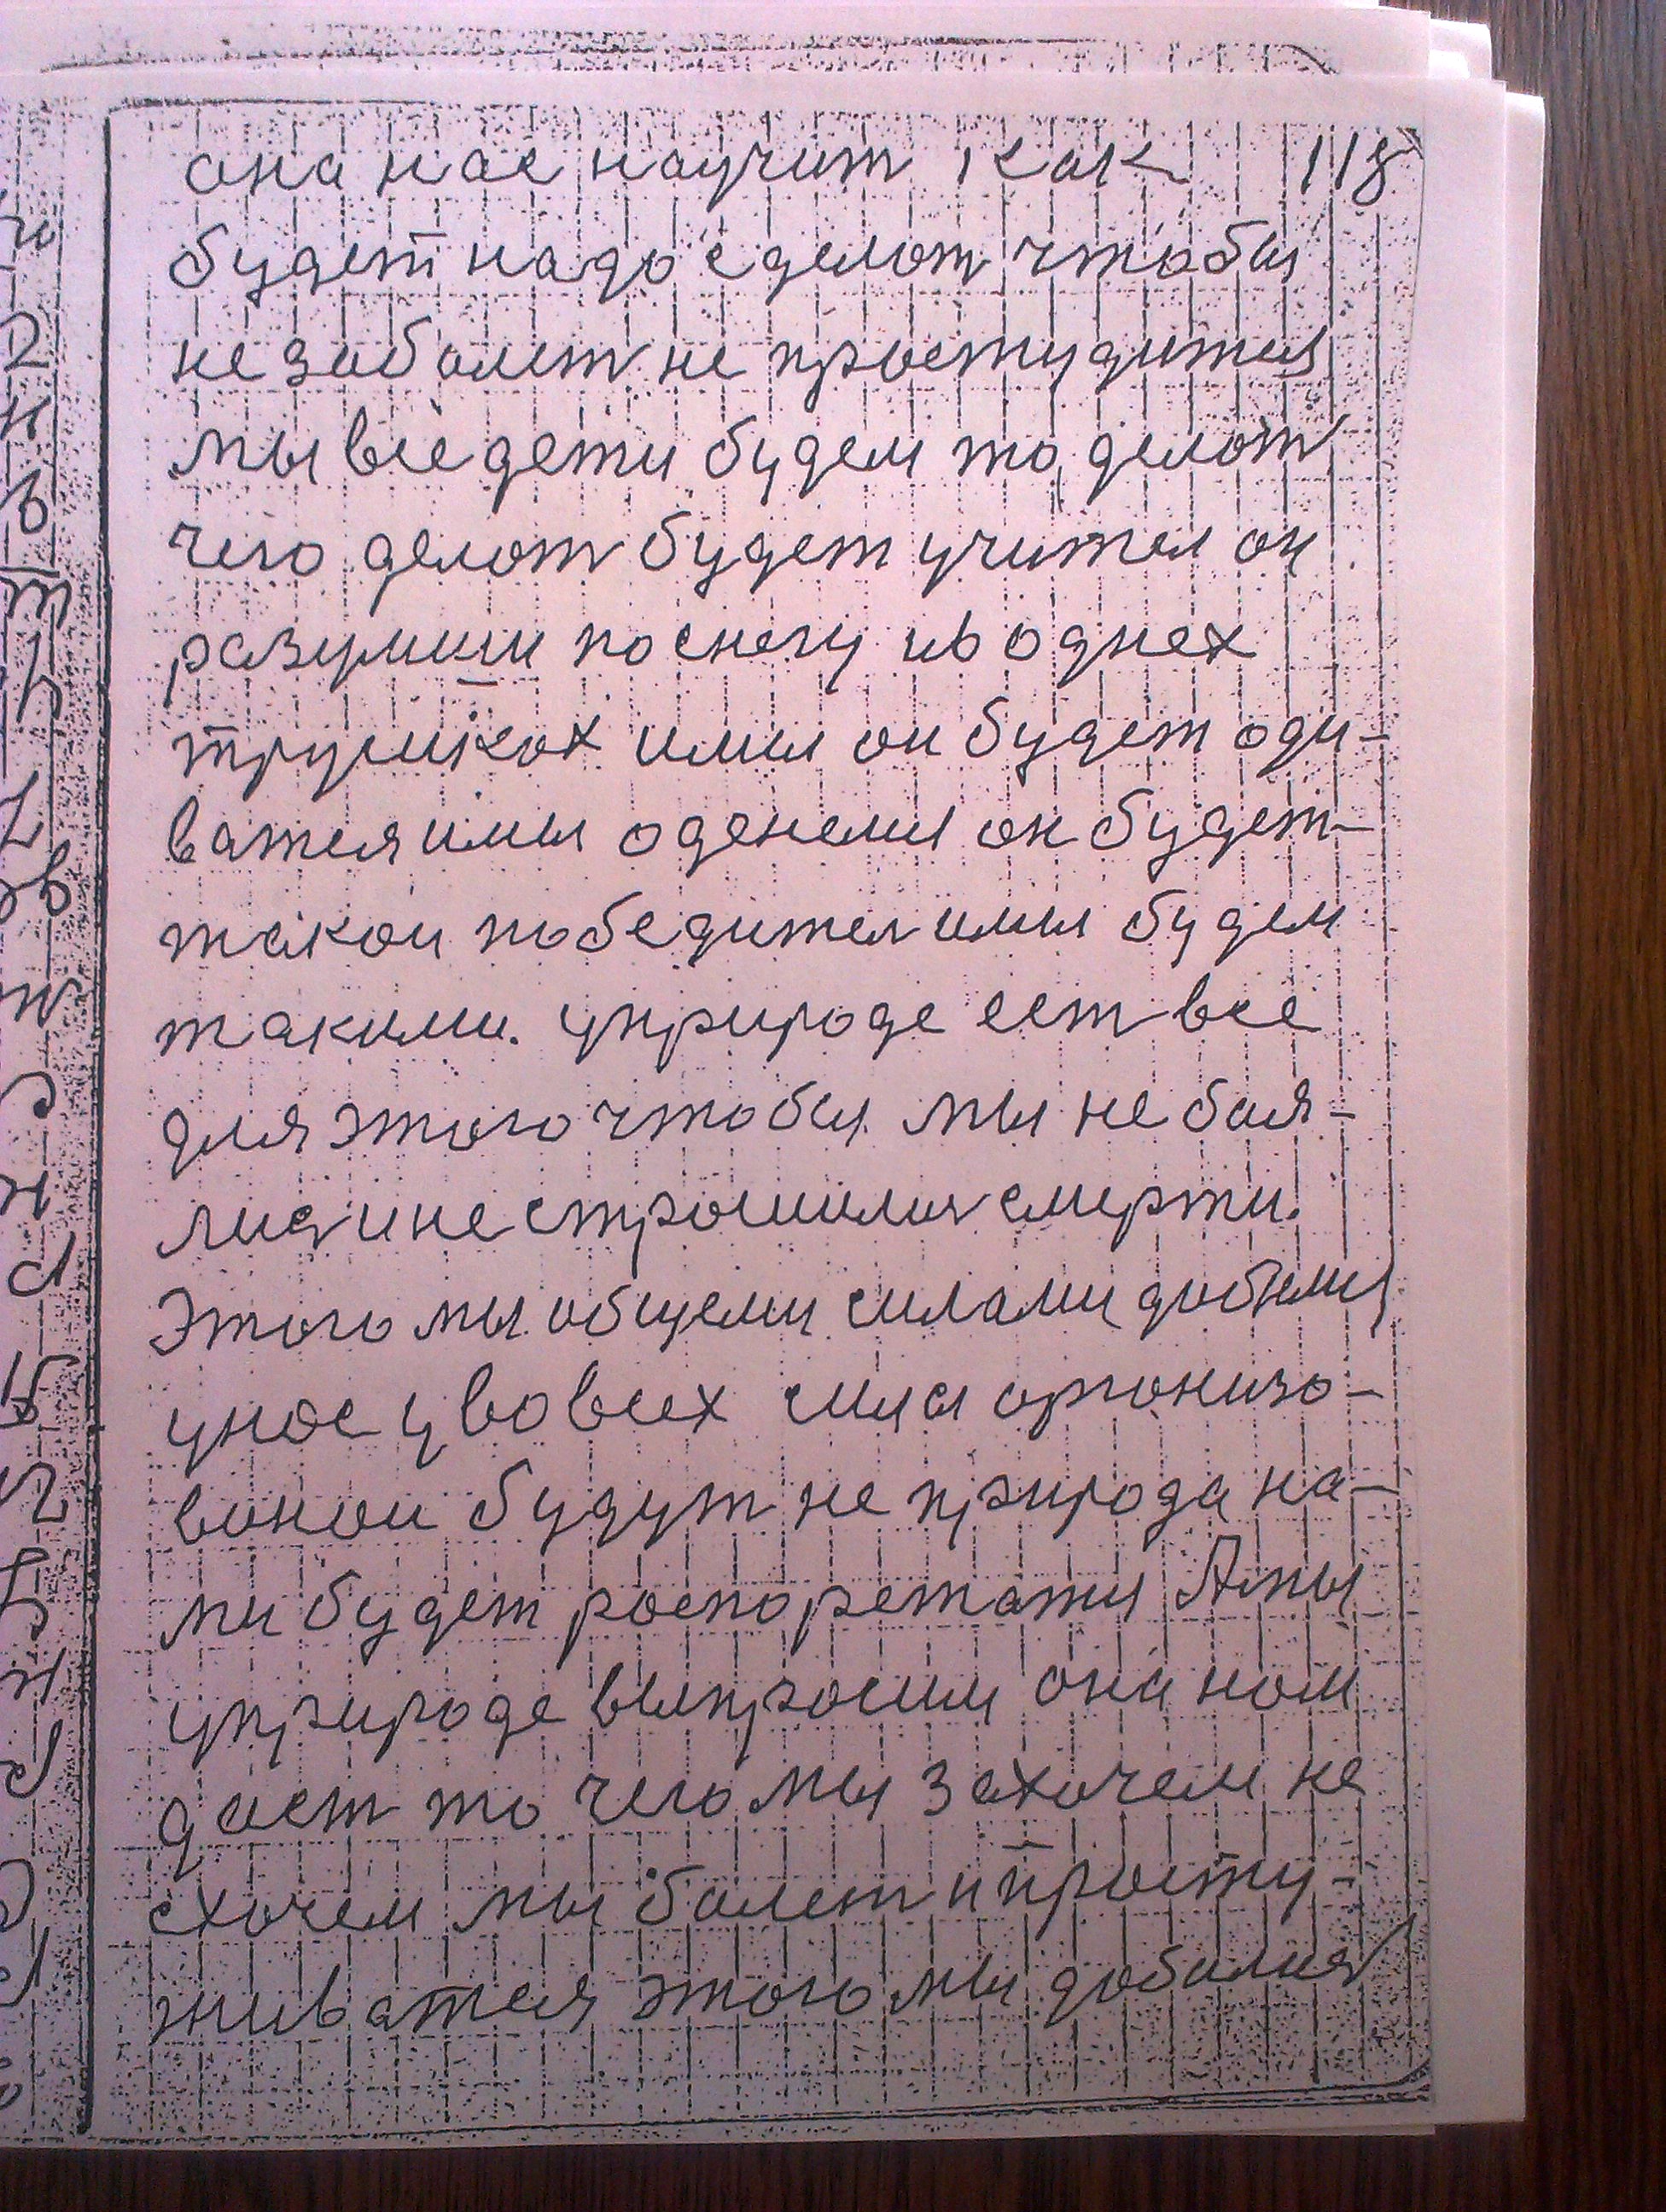 она нас научит как 118
будет надо сделат чтобы
не заболет не простудится
мы все дети будем то делат
чего делот будет учител он
разумши по снегу и в однех
трушках и мы он будет оди-
ватся и мы оденемся он будет
такои победител и мы будем
такими. уприроде ест все
для этого чтобы мы не боя-
лися и не строшился смерти.
Этого мы общеми силами добемся
унос у во всех силы оргонизо-
ваной будут не природа на-
ми будет роспоретатся А мы
уприроде выпросим она ном
дост то чего мы захочем не
схочем мы болет и просту-
живатся этого мы добился